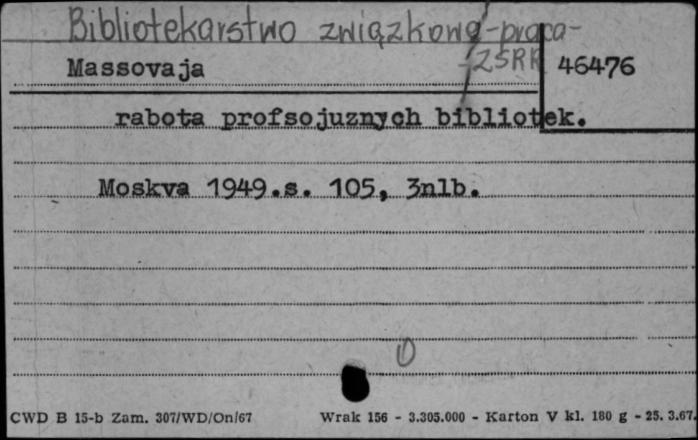 Bibliotekarstwo związkowe-praca-
-ZSRR
Massovaja
46476
rabota profsojuznych bibliotek.
Moskva 1949.s. 105, 3nlb.
CWD B 15-b Zam. 307/WD/On/67 Wrak 156 - 3.305.000 - Karton V kl. 180 g - 25. 3.67.